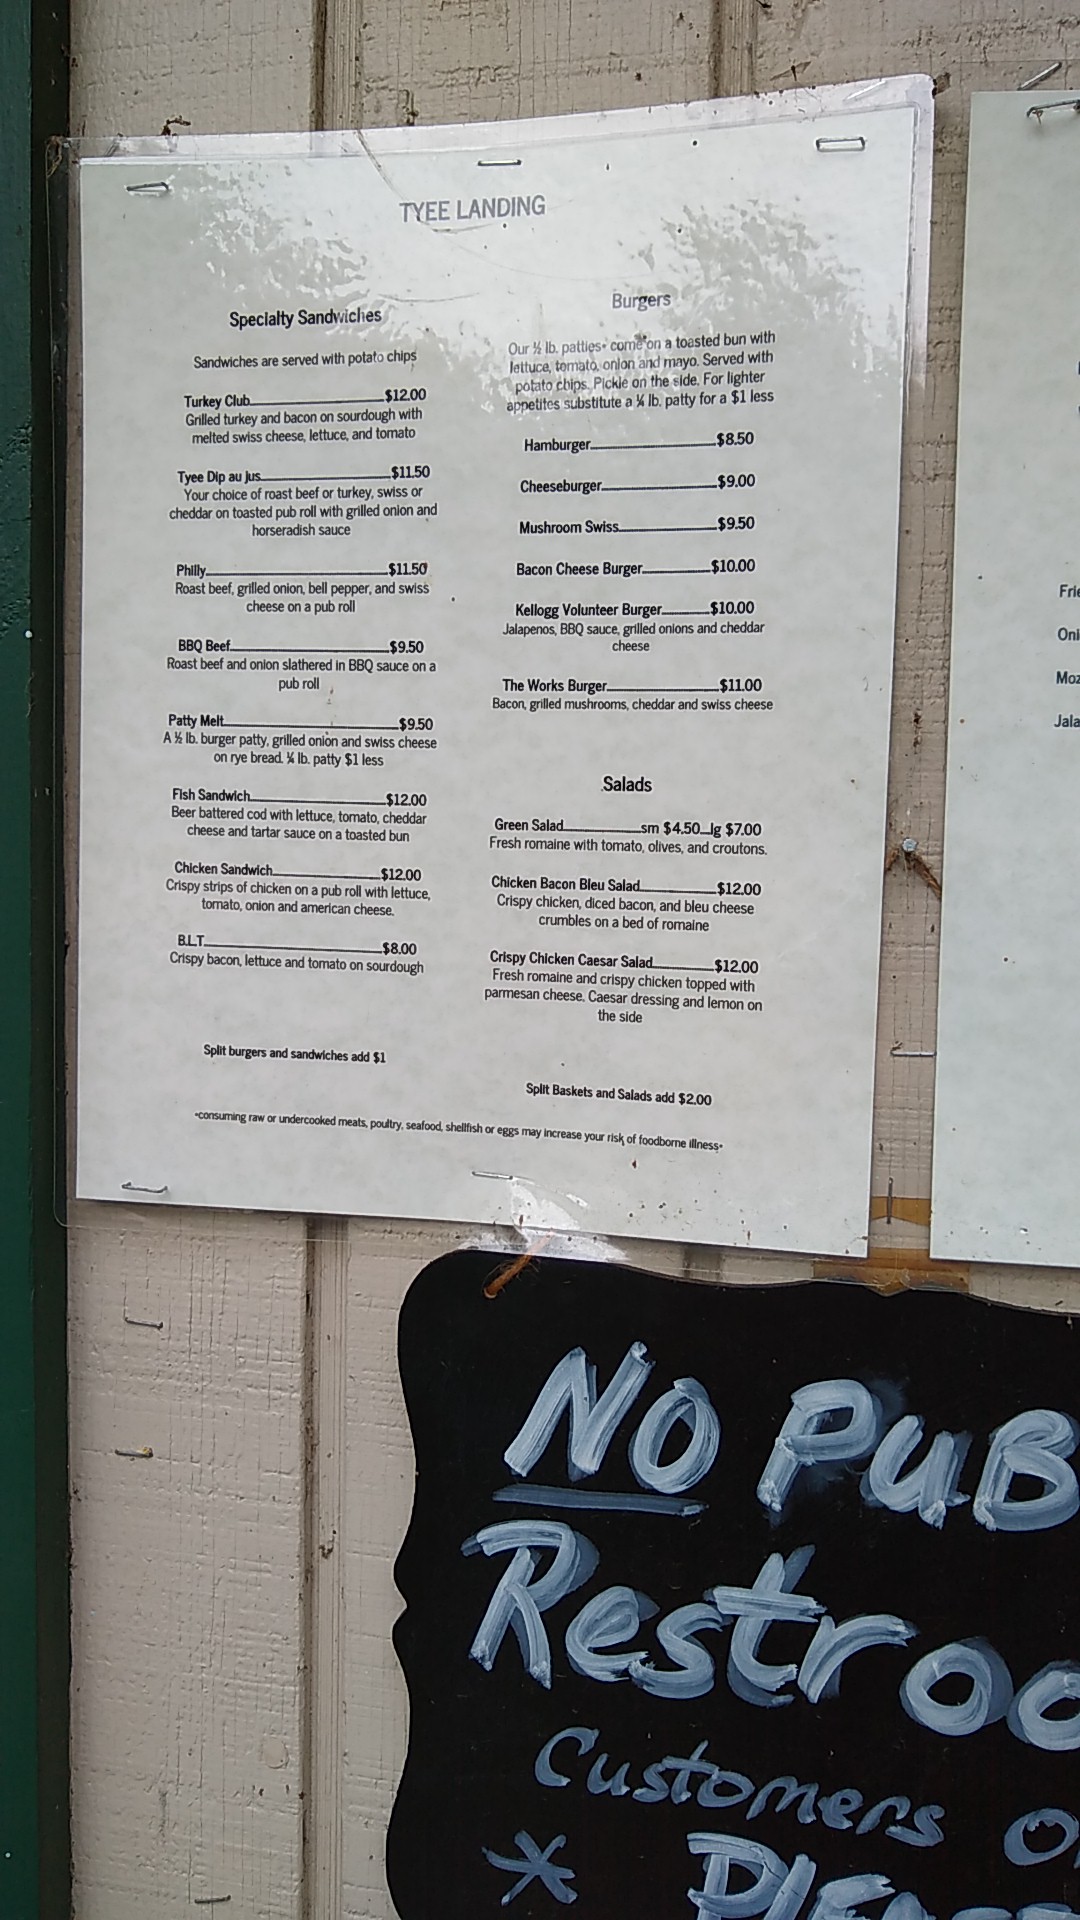 TYEE LANDING
Specialty Sandwiches
Sandwiches are served with potato chips
Turkey Club $12.00
Grilled turkey and bacon on sourdough with
melted swiss cheese, lettuce, and tomato
Tyee Dip au jus $11.50
Your choice of roast beef or turkey, swiss or
cheddar on toasted pub roll with grilled onion and
horseradish sauce
Philly $11.50
Roast beef, grilled onion, bell pepper, and swiss
cheese on a pub roll
BBQ Beef $9.50
Roast beef and onion slathered in BBQ sauce on a
pub roll
Patty Melt $9.50
A ½ lb. burger patty, grilled onion and swiss cheese
on rye bread. ¼ lb. patty $1 less
Fish Sandwich $12.00
Beer battered cod with lettuce, tomato, cheddar
cheese and tartar sauce on a toasted bun
Chicken Sandwich $12.00
Crispy strips of chicken on a pub roll with lettuce,
tomato, onion and american cheese.
B.L.T. $8.00
Crispy bacon, lettuce and tomato on sourdough
Split burgers and sandwiches add $1
Burgers
Our ½ lb. patties* come on a toasted bun with
lettuce, tomato, onion and mayo. Served with
potato chips. Pickle on the side. For lighter
appetites substitute a ¼ lb. patty for a $1 less
Hamburger $8.50
Cheeseburger $9.00
Mushroom Swiss $9.50
Bacon Cheese Burger $10.00
Kellogg Volunteer Burger $10.00
Jalapenos, BBQ sauce, grilled onions and cheddar
cheese
The Works Burger $11.00
Bacon, grilled mushrooms, cheddar and swiss cheese
Salads
Green Salad sm $4.50 lg $7.00
Fresh romaine with tomato, olives, and croutons.
Chicken Bacon Bleu Salad $12.00
Crispy chicken, diced bacon, and bleu cheese
crumbles on a bed of romaine
Crispy Chicken Caesar Salad $12.00
Fresh romaine and crispy chicken topped with
parmesan cheese. Caesar dressing and lemon on
the side
Split Baskets and Salads add $2.00
*consuming raw or undercooked meats, poultry, seafood, shellfish or eggs may increase your risk of foodborne illness*
Frie
Oni
Moz
Jala
NO PUB
Restroo
Customers O
*